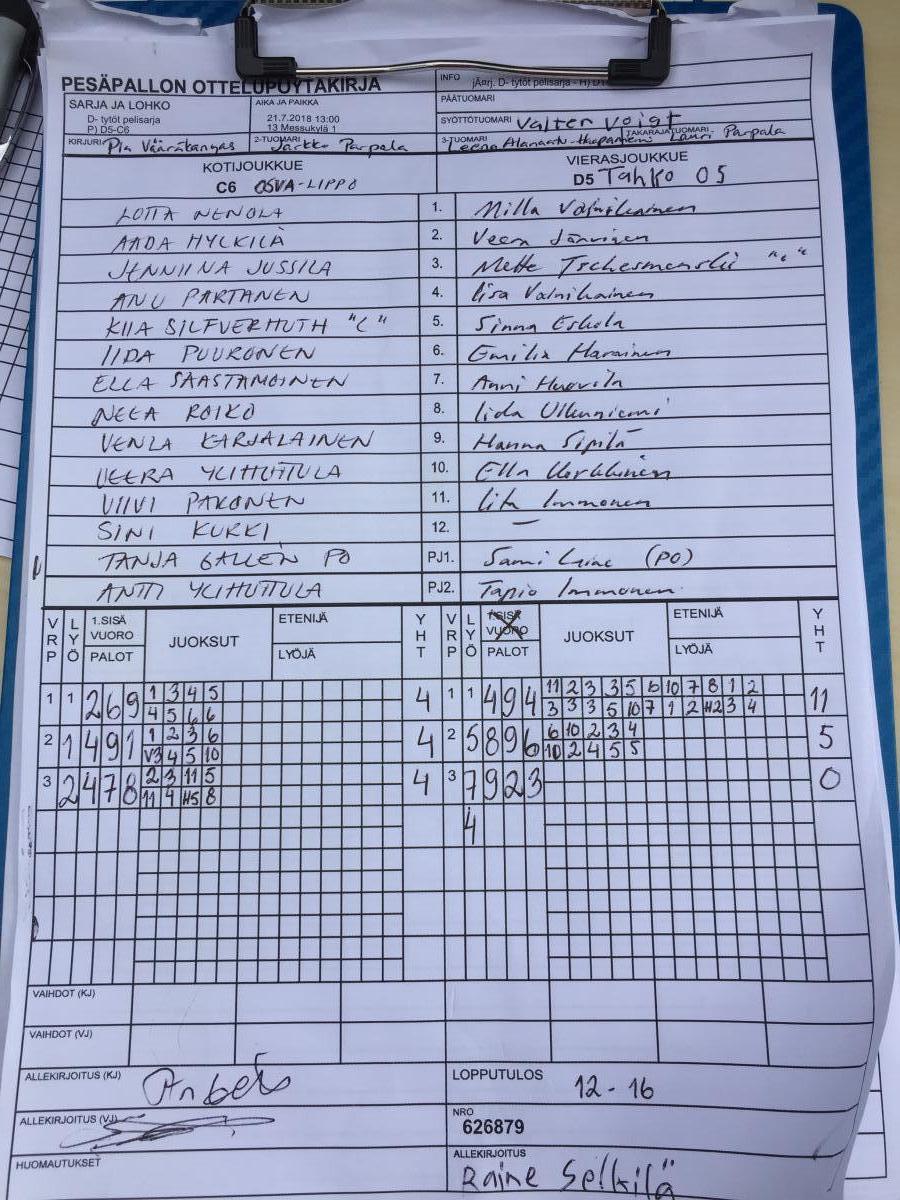 PESÄPALLON OTTELUPÖYTÄKIRJA
INFO
SARJA JA LOHKO
D- tytöt pelisarja
P) D5-C6
AIKA JA PAIKKA
21.7.2018 13:00
13 Messukylä 1
PÄÄTUOMARI
SYÖTTÖTUOMARI Valter Voigt
KIRJURI Pia Vääräkangas
2-TUOMARI Jarkko Parpala
3-TUOMARI Leena
TAKARAJATUOMARI Lauri Parpala
KOTIJOUKKUE
C6 OSVA-LIPPO
VIERASJOUKKUE
D5 Tahko 05
LOTTA NENOLA 1. Milla Vainikainen
AADA HYLKILÄ 2. Veera
JENNIINA JUSSILA 3. Mette "c"
ANU PARTANEN 4. Iisa Vainikainen
KIIA SILFVERHUTH "C" 5. Sinna Eskola
IIDA PUURONEN 6. Emilia
ELLA SAASTAMOINEN 7. Anni Huovila
NEEA ROIKO 8. Iida Ulkuniemi
VENLA KARJALAINEN 9. Hanna Sipilä
VEERA YLIHUTTULA 10. Ella
VIIVI PAKONEN 11. Immonen
SINI KURKI 12. –
TANJA GALLEN PO PJ1. Sami Laine (PO)
ANTTI YLIHUTTULA PJ2. Tapio Immonen
VRP LYÖ 1.SISÄ VUORO PALOT JUOKSUT ETENIJÄ LYÖJÄ YHT VRP LYÖ 1.SISÄ VUORO PALOT JUOKSUT ETENIJÄ LYÖJÄ YHT
1 1 2 6 9 1 3 4 5 4 1 1 4 9 4 11 2 3 3 5 6 10 7 8 1 2 11
4 5 6 6 3 3 3 5 10 7 1 2 H2 3 4
2 1 4 9 1 1 2 3 6 4 2 5 8 9 6 6 10 2 3 4 5
V3 4 5 10 10 2 4 5 5
3 2 4 7 8 2 3 11 5 4 3 7 9 2 3 0
11 4 H5 8
4
VAIHDOT (KJ)
VAIHDOT (VJ)
ALLEKIRJOITUS (KJ)
LOPPUTULOS 12-16
ALLEKIRJOITUS (VJ)
NRO
626879
HUOMAUTUKSET
ALLEKIRJOITUS
Raine Selkilä